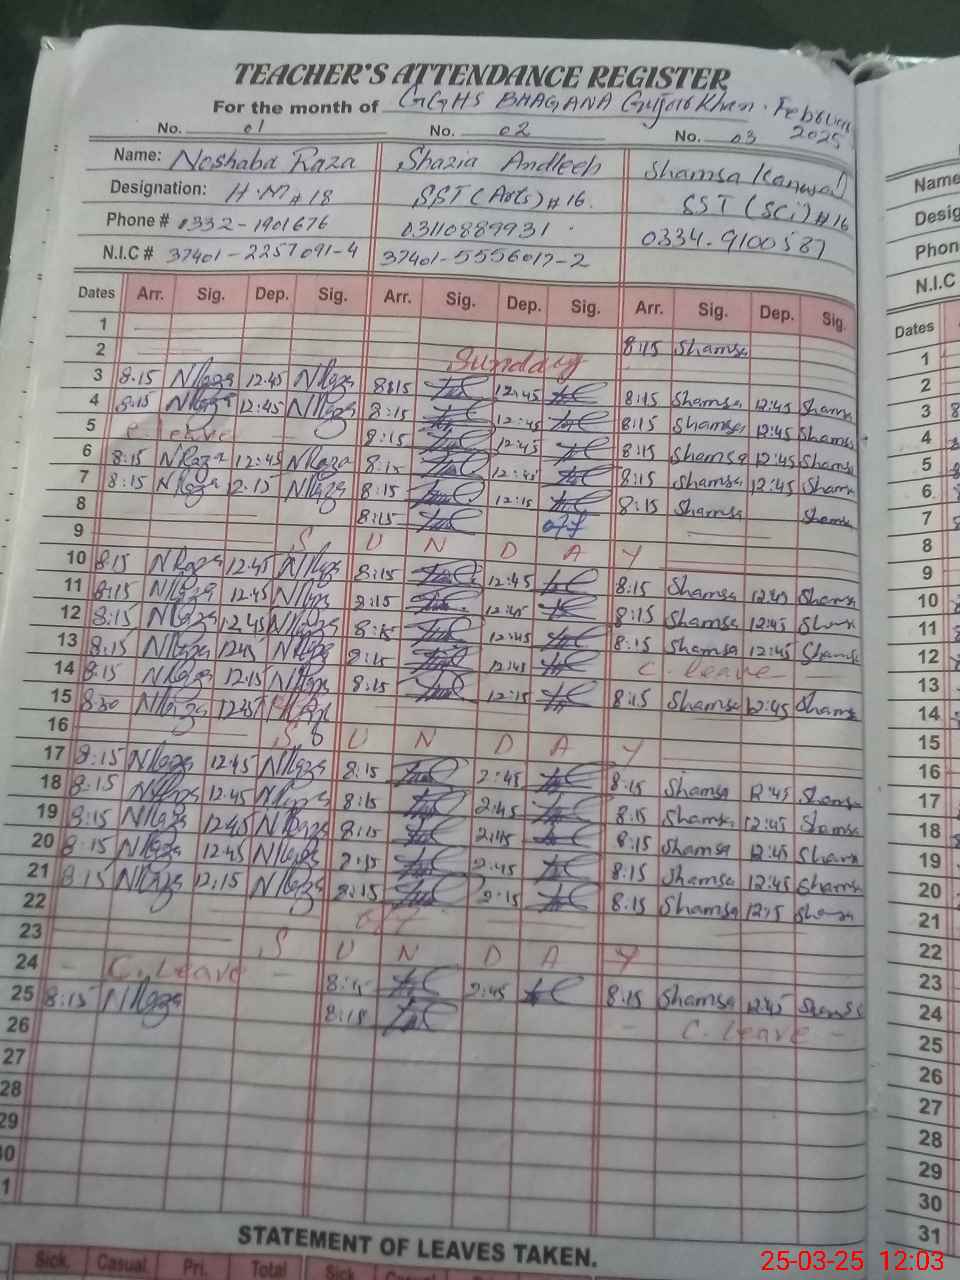 TEACHER'S ATTENDANCE REGISTER
For the month of GGHS BHAGANA Gujar Khan. February 2025
No. 01 No. 02 No. 03
Name: Noshaba Raza Shazia Andleeb Shamsa Kanwal
Designation: H.M # 18 SST (Arts) # 16. SST (Sci) # 16
Phone # 0332-1901676 03110889931 0334-9100587
N.I.C # 37401-2257091-4 37401-5556017-2
Dates Arr. Sig. Dep. Sig. Arr. Sig. Dep. Sig. Arr. Sig. Dep. Sig.
1 8:15 Shamsa
2 Sunday
3 8:15 NRaza 12:45 NRaza 8:15 12:45 8:15 Shamsa 12:45 Shamsa
4 8:15 NRaza 12:45 NRaza 8:15 12:45 8:15 Shamsa 12:45 Shamsa
5 C. leave 8:15 12:45 8:15 Shamsa 12:45 Shamsa
6 8:15 NRaza 12:45 NRaza 8:15 12:45 8:15 Shamsa 12:45 Shamsa
7 8:15 NRaza 12:15 NRaza 8:15 12:15 8:15 Shamsa Shamsa
8 8:15 off
9 S U N D A Y
10 8:15 NRaza 12:45 NRaza 8:15 12:45 8:15 Shamsa 12:45 Shamsa
11 8:15 NRaza 12:45 NRaza 8:15 12:45 8:15 Shamsa 12:45 Shamsa
12 8:15 NRaza 12:45 NRaza 8:15 12:45 8:15 Shamsa 12:45 Shamsa
13 8:15 NRaza 12:45 NRaza 8:15 12:45 C. leave
14 8:15 NRaza 12:15 NRaza 8:15 12:15 8:15 Shamsa 12:45 Shamsa
15 8:30 NRaza 12:45 NRaza
16 S U N D A Y
17 8:15 NRaza 12:45 NRaza 8:15 2:45 8:15 Shamsa 12:45 Shamsa
18 8:15 NRaza 12:45 NRaza 8:15 2:45 8:15 Shamsa 12:45 Shamsa
19 8:15 NRaza 12:45 NRaza 8:15 2:45 8:15 Shamsa 12:45 Shamsa
20 8:15 NRaza 12:45 NRaza 8:15 2:45 8:15 Shamsa 12:45 Shamsa
21 8:15 NRaza 12:15 NRaza 8:15 2:15 8:15 Shamsa 12:15 Shamsa
22 off
23 S U N D A Y
24 - C. Leave - 8:15 2:45 8:15 Shamsa 12:45 Shamsa
25 8:15 NRaza 8:15 - C. leave -
26
27
28
29
30
31
STATEMENT OF LEAVES TAKEN.
Sick. Casual Pri. Total Sick.
Name
Desig
Phon
N.I.C
Dates
1
2
3
4
5
6
7
8
9
10
11
12
13
14
15
16
17
18
19
20
21
22
23
24
25
26
27
28
29
30
31
25-03-25 12:03